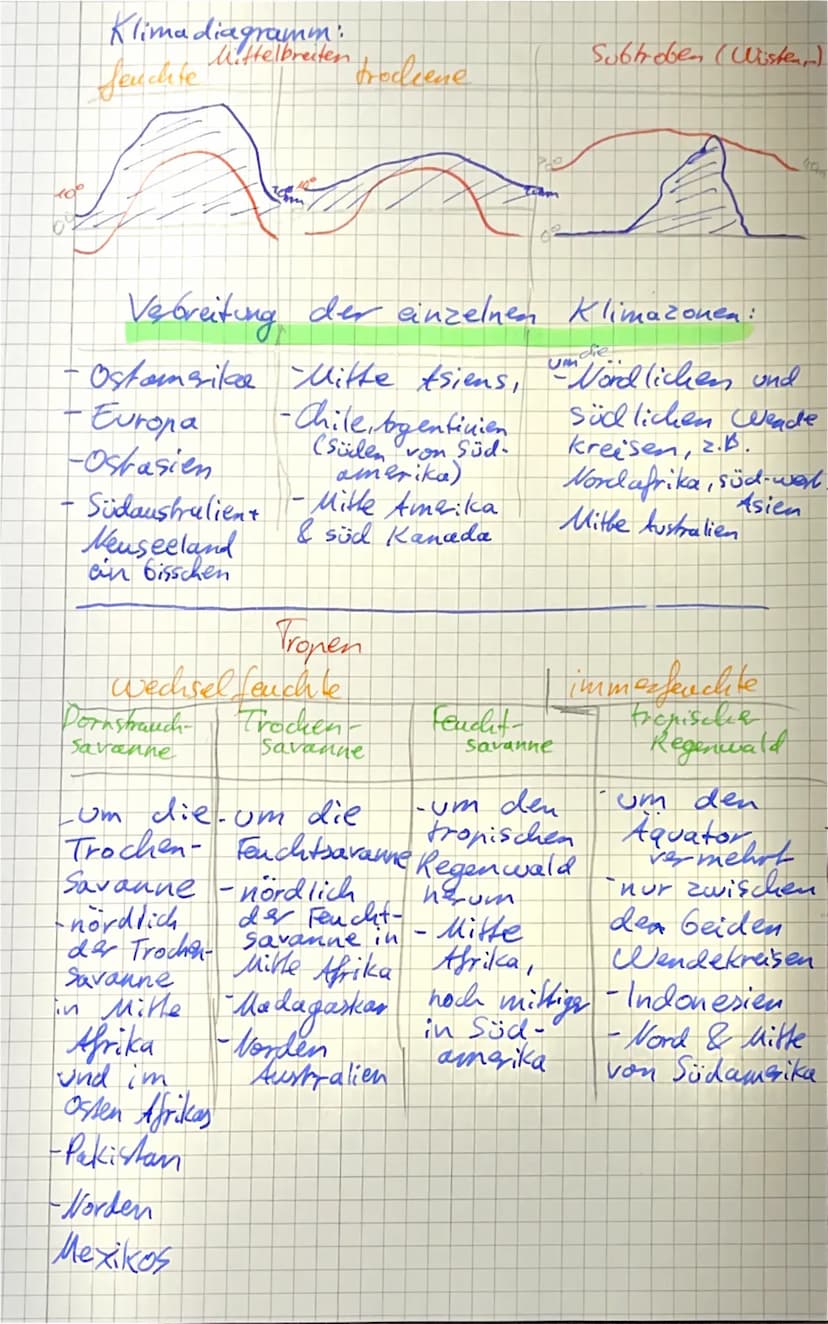 Klimadiagramm:
Mittelbreiten
feuchte
trockene
Subtroben (Wüsten,)
10°
0°
10°
20°
0°
Vebreitung der einzelnen Klimazonen:
- Ostamerika
- Europa
- Ostasien
- Südaustralien +
Neuseeland
ein bisschen
- Mitte Asiens,
- Chile, Argentinien
(Süden von Süd-
amerika)
- Mitte Amerika
& süd Kanada
um die
- Nördlichen und
südlichen Wende
kreisen, z.B.
Nordafrika, süd-west
Asien
Mitte Australien
Tropen
wechselfeuchte
immerfeuchte
Dornstrauch-
savanne
Trocken-
savanne
Feucht-
savanne
tropischer
Regenwald
- um die
Trocken-
Savanne
- nördlich
der Trocken-
Savanne
in Mitte
Afrika
und im
Osten Afrikas
- Pakistan
- Norden
Mexikos
- um die
Feuchtsavanne
- nördlich
der Feucht-
savanne in
Mitte Afrika
- Madagaskar
- Norden
Australien
- um den
tropischen
Regenwald
herum
- Mitte
Afrika,
noch mittiger
in Süd-
amerika
- um den
Äquator
vermehrt
- nur zwischen
den beiden
Wendekreisen
- Indonesien
- Nord & Mitte
von Südamerika